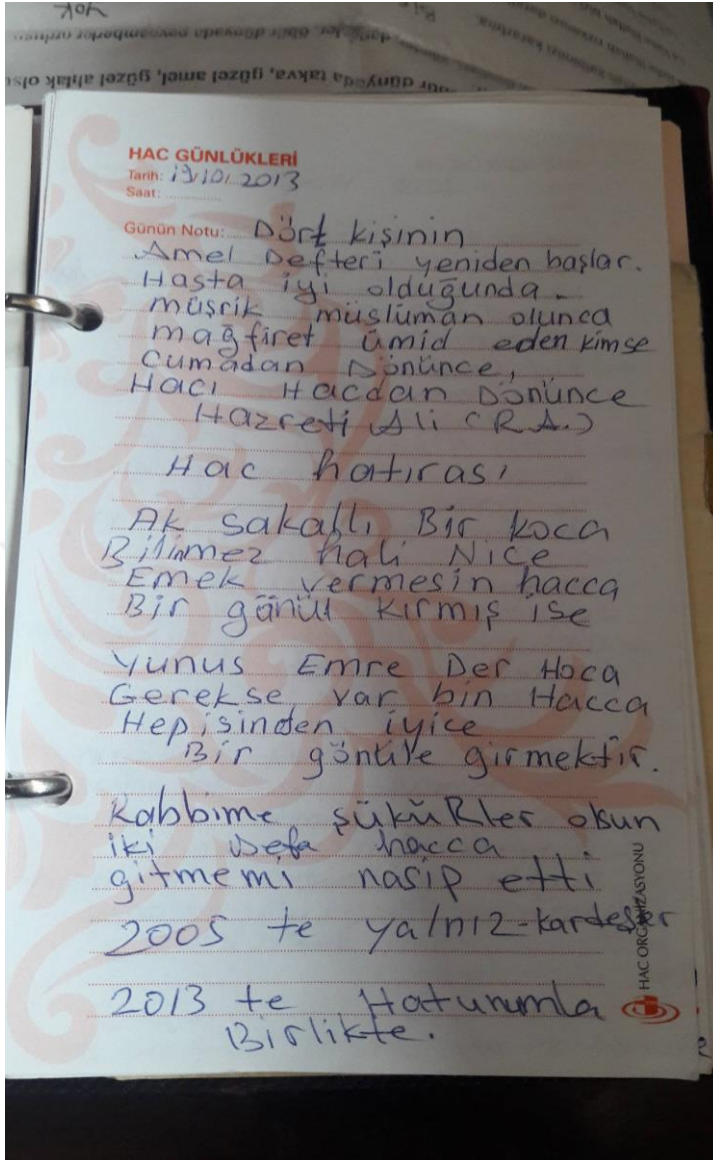 yok
dür dünyada takva, güzel amel, güzel ahlak olsa
HAC GÜNLÜKLERİ
Tarih: 19/10/2013
Saat:
Günün Notu: Dört kişinin
Amel Defteri yeniden başlar.
Hasta iyi olduğunda.
müşrik müslüman olunca
mağfiret ümid eden kimse
Cumadan Dönünce,
Hacı Hacdan Dönünce
Hazreti Ali (R.A.)
Hac hatırası
Ak sakallı Bir koca
Bilinmez hali Nice
Emek vermesin hacca
Bir gönül kırmış ise
Yunus Emre Der Hoca
Gerekse var bin Hacca
Hepisinden iyice
Bir gönüle girmektir.
Rabbime şükürler olsun
iki Defa hacca
gitmemi nasip etti
2005 te yalnız-kardeşler
2013 te Hatunumla
Birlikte.
HAC ORGANİZASYONU